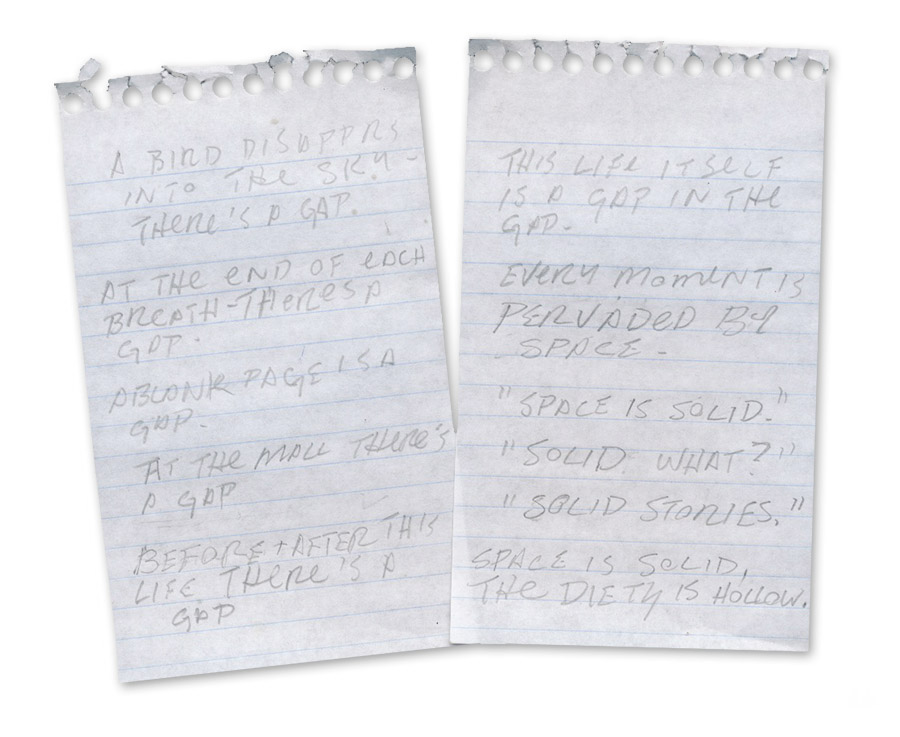 A BIRD DISAPPRS
INTO THE SKY-
THERE'S A GAP.
AT THE END OF EACH
BREATH-THERES A
GAP.
A BLANK PAGE IS A
GAP.
AT THE MALL THERE'S
A GAP
BEFORE + AFTER THIS
LIFE THERE'S A
GAP
THIS LIFE ITSELF
IS A GAP IN THE
GAP.
EVERY MOMENT IS
PERVADED BY
SPACE -
"SPACE IS SOLID."
"SOLID WHAT?"
"SOLID STORIES."
SPACE IS SOLID,
THE DIETY IS HOLLOW.